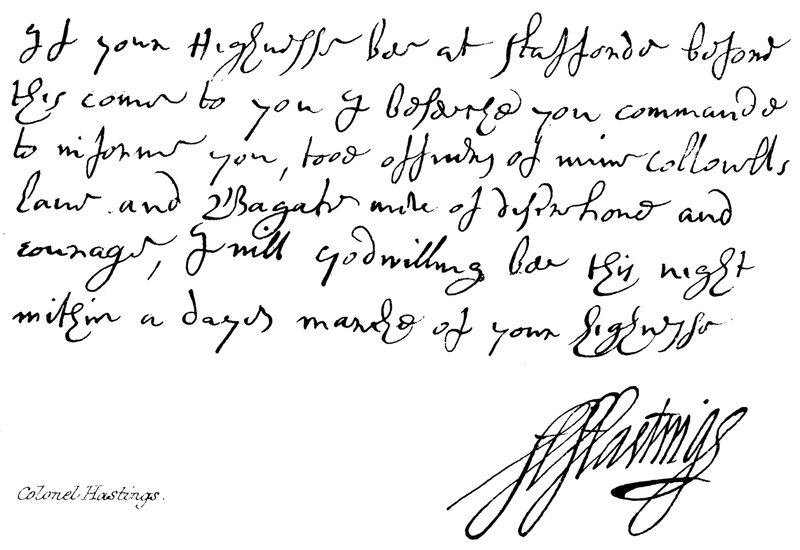 If your Highnesse bee at Stafforde before
this come to you I beseeche you commande
to informe you, tooe officers of mine Collonells
Lane and Bagate men of discrehone and
courage, I will godwilling bee this night
within a dayes marche of your highnesse
Hastings
Colonel Hastings.